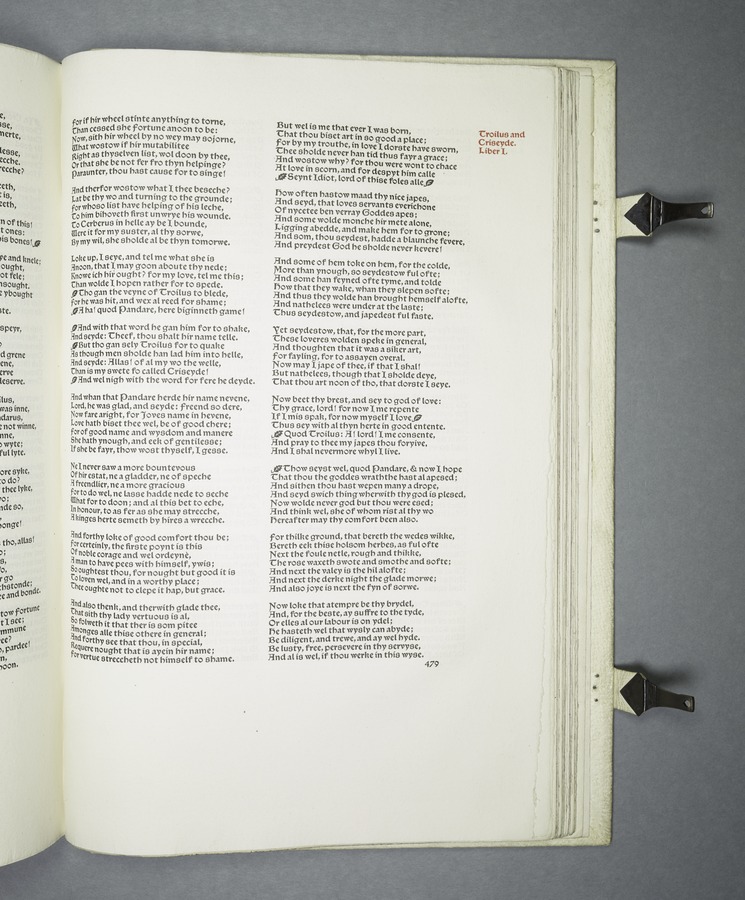 merte,
of this!
t ones:
bones!
and knele:
ought,
ybought
speyr,
grene
deserve.
was inne,
not winne,
wyte;
thee lyke,
and bonde.
fortune
I see;
pardee!
For if hir wheel stinte anything to torne,
Than cessed she Fortune anoon to be:
Now, sith hir wheel by no wey may sojorne,
What wostow if hir mutabilitee
Right as thyselven list, wol doon by thee,
Or that she be not fer fro thyn helpinge?
Paraunter, thou hast cause for to singe!

And therfor wostow what I thee beseche?
Lat be thy wo and turning to the grounde;
For whoso list have helping of his leche,
To him bihoveth first unwrye his wounde.
To Cerberus in helle ay be I bounde,
Were it for my suster, al thy sorwe,
By my wil, she sholde al be thyn tomorwe.

Loke up, I seye, and tel me what she is
Anoon, that I may goon aboute thy nede;
Knowe ich hir ought? for my love, tel me this;
Than wolde I hopen rather for to spede.
Tho gan the veyne of Troilus to blede,
For he was hit, and wex al reed for shame;
A ha! quod Pandare, here biginneth game!

And with that word he gan him for to shake,
And seyde: Theef, thou shalt hir name telle.
But tho gan sely Troilus for to quake
As though men sholde han lad him into helle,
And seyde: Allas! of al my wo the welle,
Than is my swete fo called Criseyde!
And wel nigh with the word for fere he deyde.

And whan that Pandare herde hir name nevene,
Lord, he was glad, and seyde: Freend so dere,
Now fare aright, for Joves name in hevene,
Love hath biset thee wel, be of good chere;
For of good name and wysdom and manere
She hath ynough, and eek of gentilesse;
If she be fayr, thow wost thyself, I gesse.

Ne I never saw a more bountevous
Of hir estat, ne a gladder, ne of speche
A freendlier, ne a more gracious
For to do wel, ne lasse hadde nede to seche
What for to doon; and al this bet to eche,
In honour, to as fer as she may strecche,
A kinges herte semeth by hires a wrecche.

And forthy loke of good comfort thou be;
For certeinly, the firste poynt is this
Of noble corage and wel ordeyné,
A man to have pees with himself, ywis;
So oughtest thou, for nought but good it is
To loven wel, and in a worthy place;
Thee oughte not to clepe it hap, but grace.

And also thenk, and therwith glade thee,
That sith thy lady vertuous is al,
So folweth it that ther is som pitee
Amonges alle thise othere in general;
And forthy see that thou, in special,
Requere nought that is ayein hir name;
For vertue streccheth not himself to shame.

But wel is me that ever I was born,
That thou biset art in so good a place;
For by my trouthe, in love I dorste have sworn,
Thee sholde never han tid thus fayr a grace;
And wostow why? for thou were wont to chace
At love in scorn, and for despyt him calle
Seynt Idiot, lord of thise foles alle.

How often hastow maad thy nice japes,
And seyd, that loves servants everichone
Of nycetee ben verray Goddes apes;
And some wolde monche hir mete alone,
Ligging abedde, and make hem for to grone;
And som, thou seydest, hadde a blaunche fevere,
And preydest God he sholde never kevere!

And some of hem toke on hem, for the colde,
More than ynough, so seydestow ful ofte;
And some han feyned ofte tyme, and tolde
How that they wake, whan they slepen softe;
And thus they wolde han brought hemself alofte,
And nathelees were under at the laste;
Thus seydestow, and japedest ful faste.

Yet seydestow, that, for the more part,
These loveres wolden speke in general,
And thoughten that it was a siker art,
For fayling, for to assayen overal.
Now may I jape of thee, if that I shal!
But nathelees, though that I sholde deye,
That thou art noon of tho, that dorste I seye.

Now beet thy brest, and sey to god of love:
Thy grace, lord! for now I me repente
If I mis spak, for now myself I love
Thus sey with al thyn herte in good entente.
Quod Troilus: A! lord! I me consente,
And pray to thee my japes thou foryive,
And I shal nevermore whyl I live.

Thow seyst wel, quod Pandare, & now I hope
That thou the goddes wraththe hast al apesed;
And sithen thou hast wepen many a drope,
And seyd swich thing wherwith thy god is plesed,
Now wolde never god but thou were esed;
And think wel, she of whom rist al thy wo
Hereafter may thy comfort been also.

For thilke ground, that bereth the wedes wikke,
Bereth eek thise holsom herbes, as ful ofte
Next the foule netle, rough and thikke,
The rose waxeth swote and smothe and softe;
And next the valey is the hil alofte;
And next the derke night the glade morwe;
And also joye is next the fyn of sorwe.

Now loke that atempre be thy brydel,
And, for the beste, ay suffre to the tyde,
Or elles al our labour is on ydel;
He hasteth wel that wysly can abyde;
Be diligent, and trewe, and ay wel hyde.
Be lusty, free, persevere in thy servyse,
And al is wel, if thou werke in this wyse.
479
Troilus and
Criseyde.
Liber I.